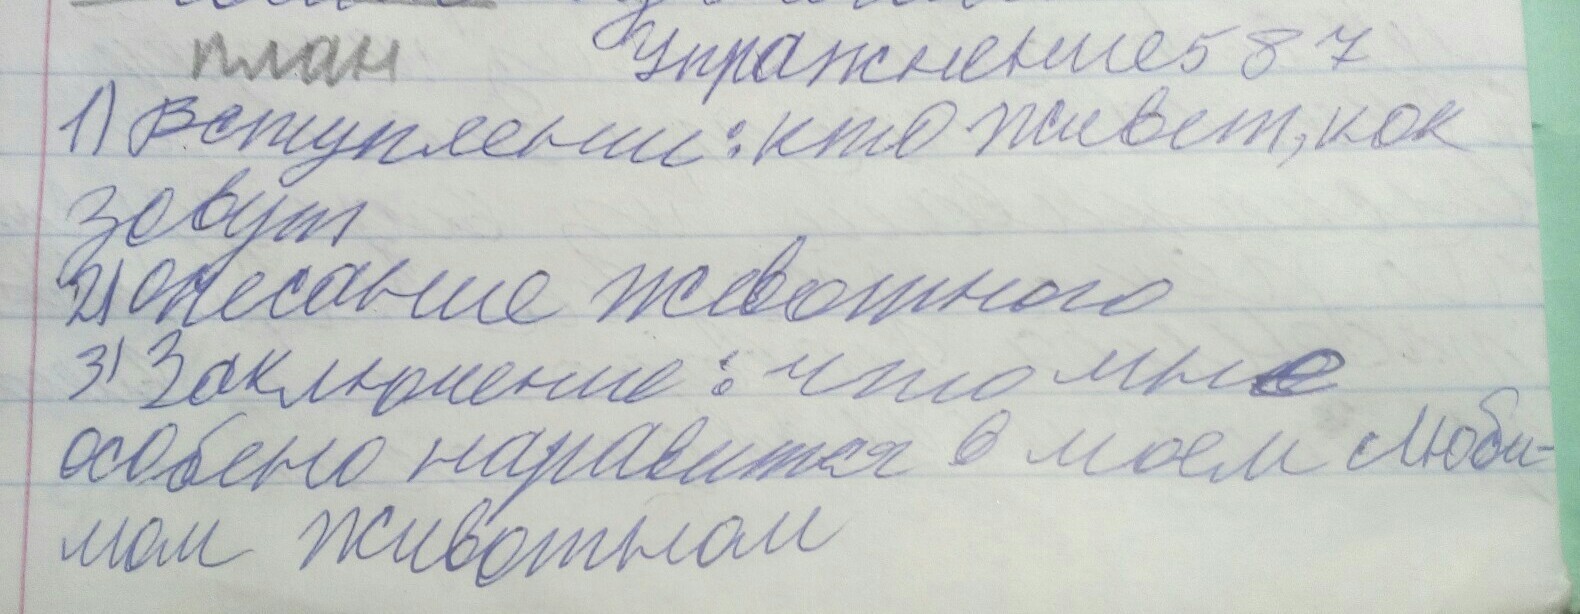 план Упражнение 587
1) Вступлении: кто живет, как
зовут
2) Описание животного
3) Заключение: что мне
особено наравится в моем люби-
мом животном